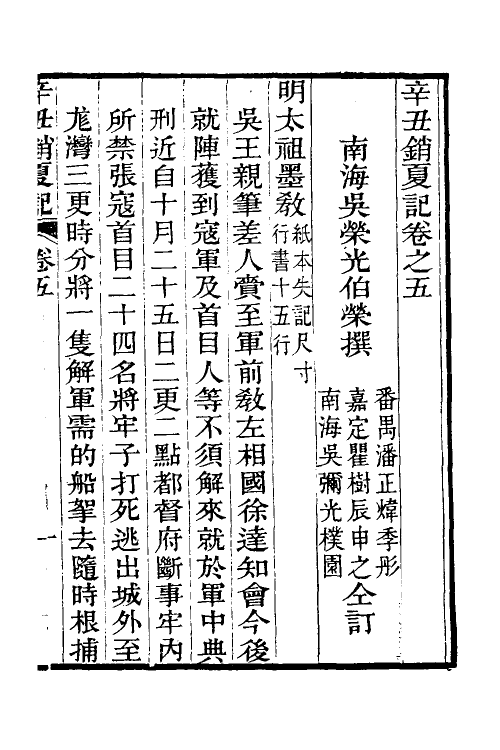 辛丑銷夏記卷之五
南海吳榮光伯榮撰
番禺潘正煒季彤
嘉定瞿樹辰申之仝訂
南海吳彌光樸園
明太祖墨敎紙本失記尺寸
行書十五行
吳王親筆差人賫至軍前敎左相國徐達知會今後
就陣獲到寇軍及首目人等不須解來就於軍中典
刑近自十月二十五日二更二點都督府斷事牢內
所禁張寇首目二十四名將牢子打死逃出城外至
龙灣三更時分將一隻解軍需的船挐去隨時根捕
辛丑銷夏記 卷五 一